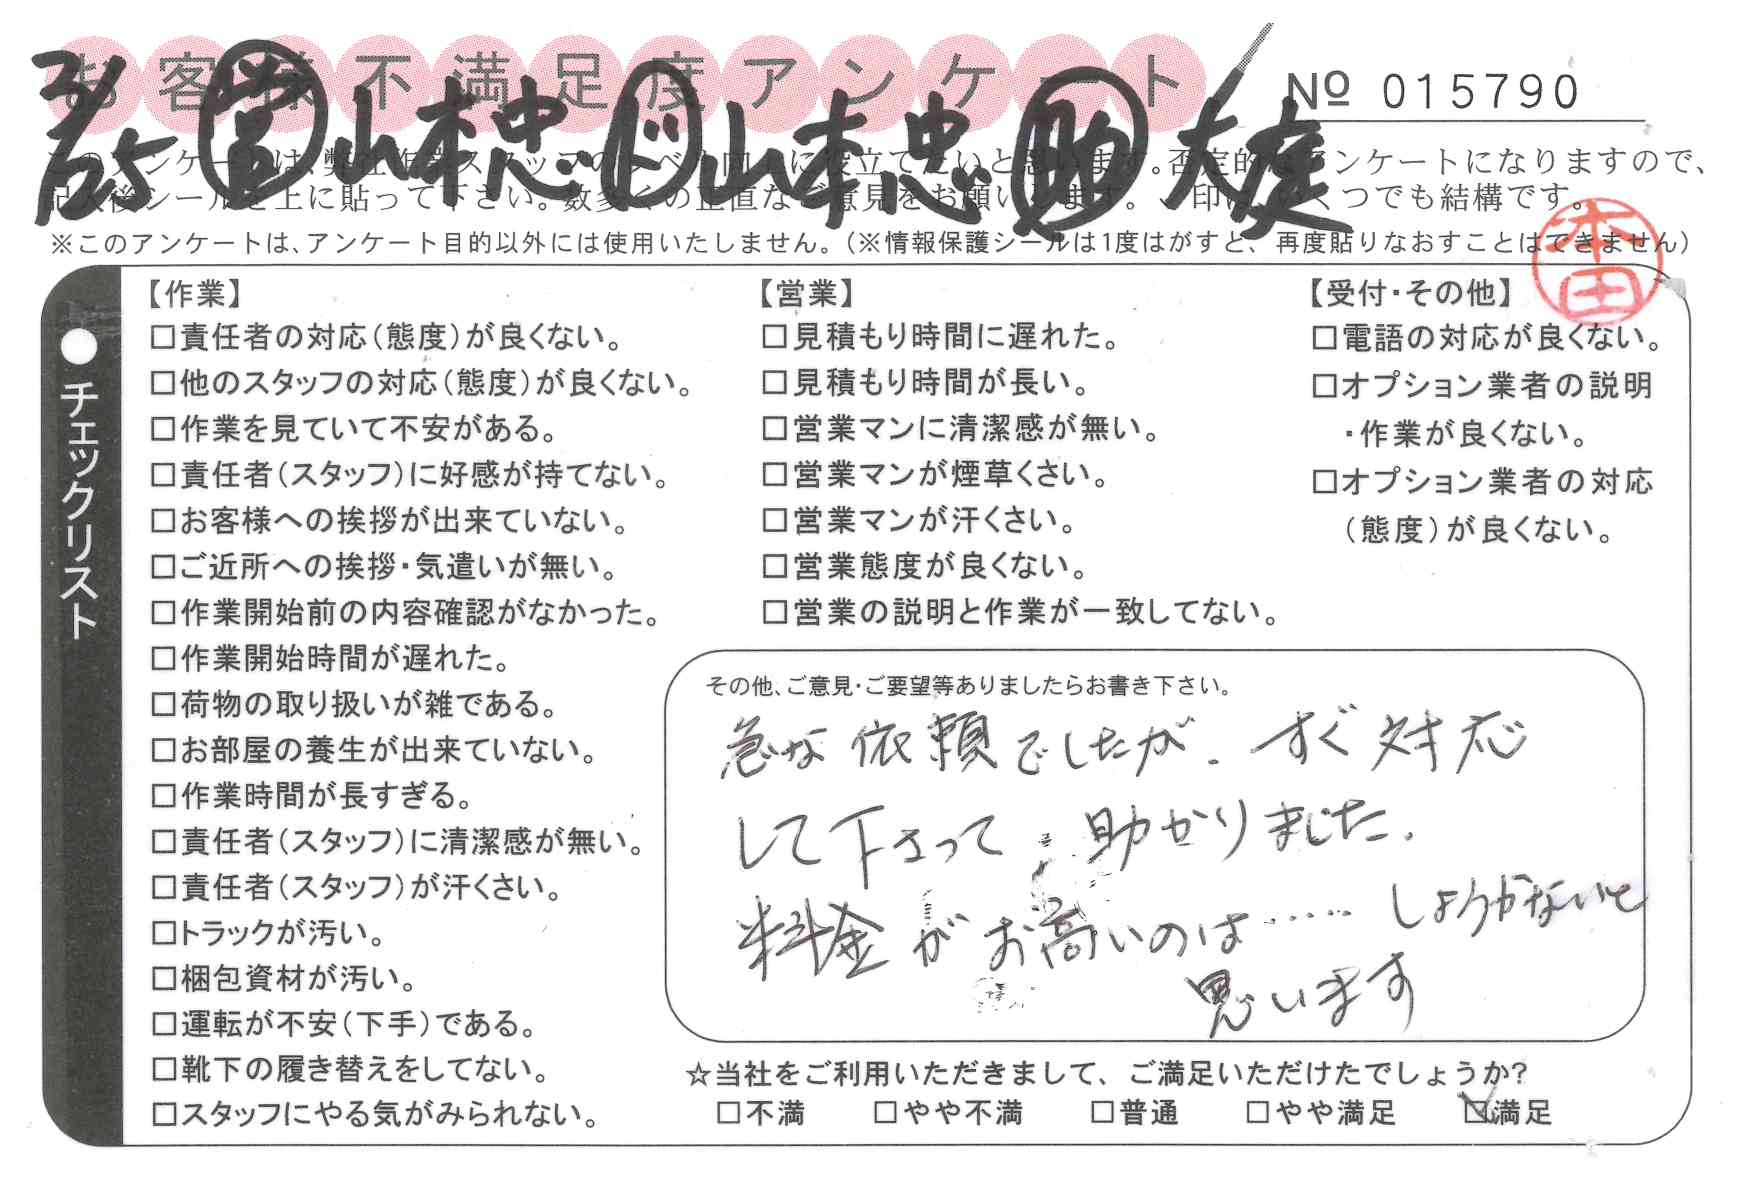 お客様不満足度アンケート
№ 015790
3/25 営 山本忠 ド 山本忠 助 大庭
このアンケートは、弊社作業スタッフのレベル向上に役立てたいと思います。否定的なアンケートになりますので、
記入後シールを上に貼って下さい。数多くの正直なご意見をお願いします。✓印は、いくつでも結構です。
※このアンケートは、アンケート目的以外には使用いたしません。(※情報保護シールは1度はがすと、再度貼りなおすことはできません)
本田
チェックリスト
【作業】
□責任者の対応(態度)が良くない。
□他のスタッフの対応(態度)が良くない。
□作業を見ていて不安がある。
□責任者(スタッフ)に好感が持てない。
□お客様への挨拶が出来ていない。
□ご近所への挨拶・気遣いが無い。
□作業開始前の内容確認がなかった。
□作業開始時間が遅れた。
□荷物の取り扱いが雑である。
□お部屋の養生が出来ていない。
□作業時間が長すぎる。
□責任者(スタッフ)に清潔感が無い。
□責任者(スタッフ)が汗くさい。
□トラックが汚い。
□梱包資材が汚い。
□運転が不安(下手)である。
□靴下の履き替えをしてない。
□スタッフにやる気がみられない。
【営業】
□見積もり時間に遅れた。
□見積もり時間が長い。
□営業マンに清潔感が無い。
□営業マンが煙草くさい。
□営業マンが汗くさい。
□営業態度が良くない。
□営業の説明と作業が一致してない。
【受付・その他】
□電話の対応が良くない。
□オプション業者の説明
・作業が良くない。
□オプション業者の対応
(態度)が良くない。
その他、ご意見・ご要望等ありましたらお書き下さい。
急な依頼でしたが、すぐ対応
して下さって 助かりました。
料金がお高いのは…… しょうがないと
思います
☆当社をご利用いただきまして、ご満足いただけたでしょうか?
□不満 □やや不満 □普通 □やや満足 ☑満足